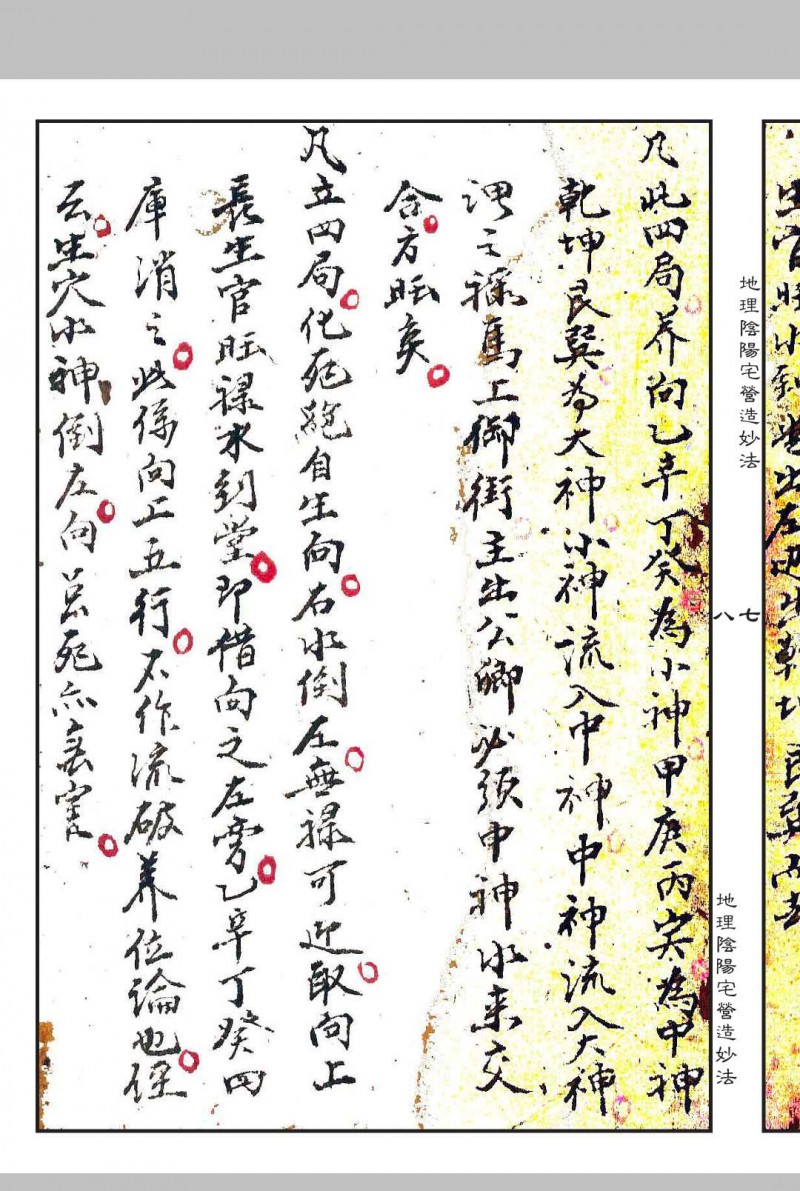 凡此四局养向乙辛丁癸為小神甲庚丙壬為中神
乾坤艮巽為大神小神流入中神中神流入大神
謂之祿馬上御街主出公卿必須中神水来交
合方旺矣
凡立四局化死絕自生向右水倒左無祿可迎取向上
長生官旺祿水到堂即借向之左旁乙辛丁癸四
庫消之此係向上五行不作流破养位論也經
云生穴水神倒左向
死亦
地理陰陽宅營造妙法
七
八
地理陰陽宅營造妙法
生官旺水到
出左
乾坤艮巽